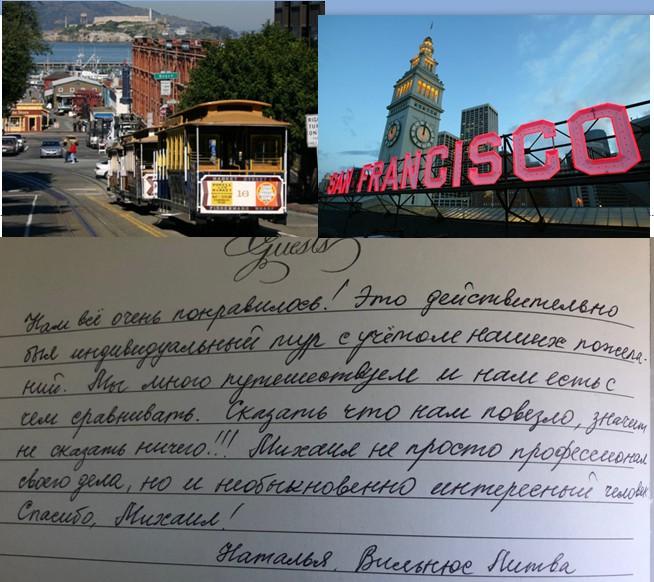 16
SAN FRANCISCO
Guests
Нам всё очень понравилось! Это действительно
был индивидуальный тур с учётом наших пожела-
ний. Мы много путешествуем и нам есть с
чем сравнивать. Сказать что нам повезло, значит
не сказать ничего!!! Михаил не просто профессионал
своего дела, но и необыкновенно интересный человек
Спасибо, Михаил!
Наталья, Вильнюс Литва